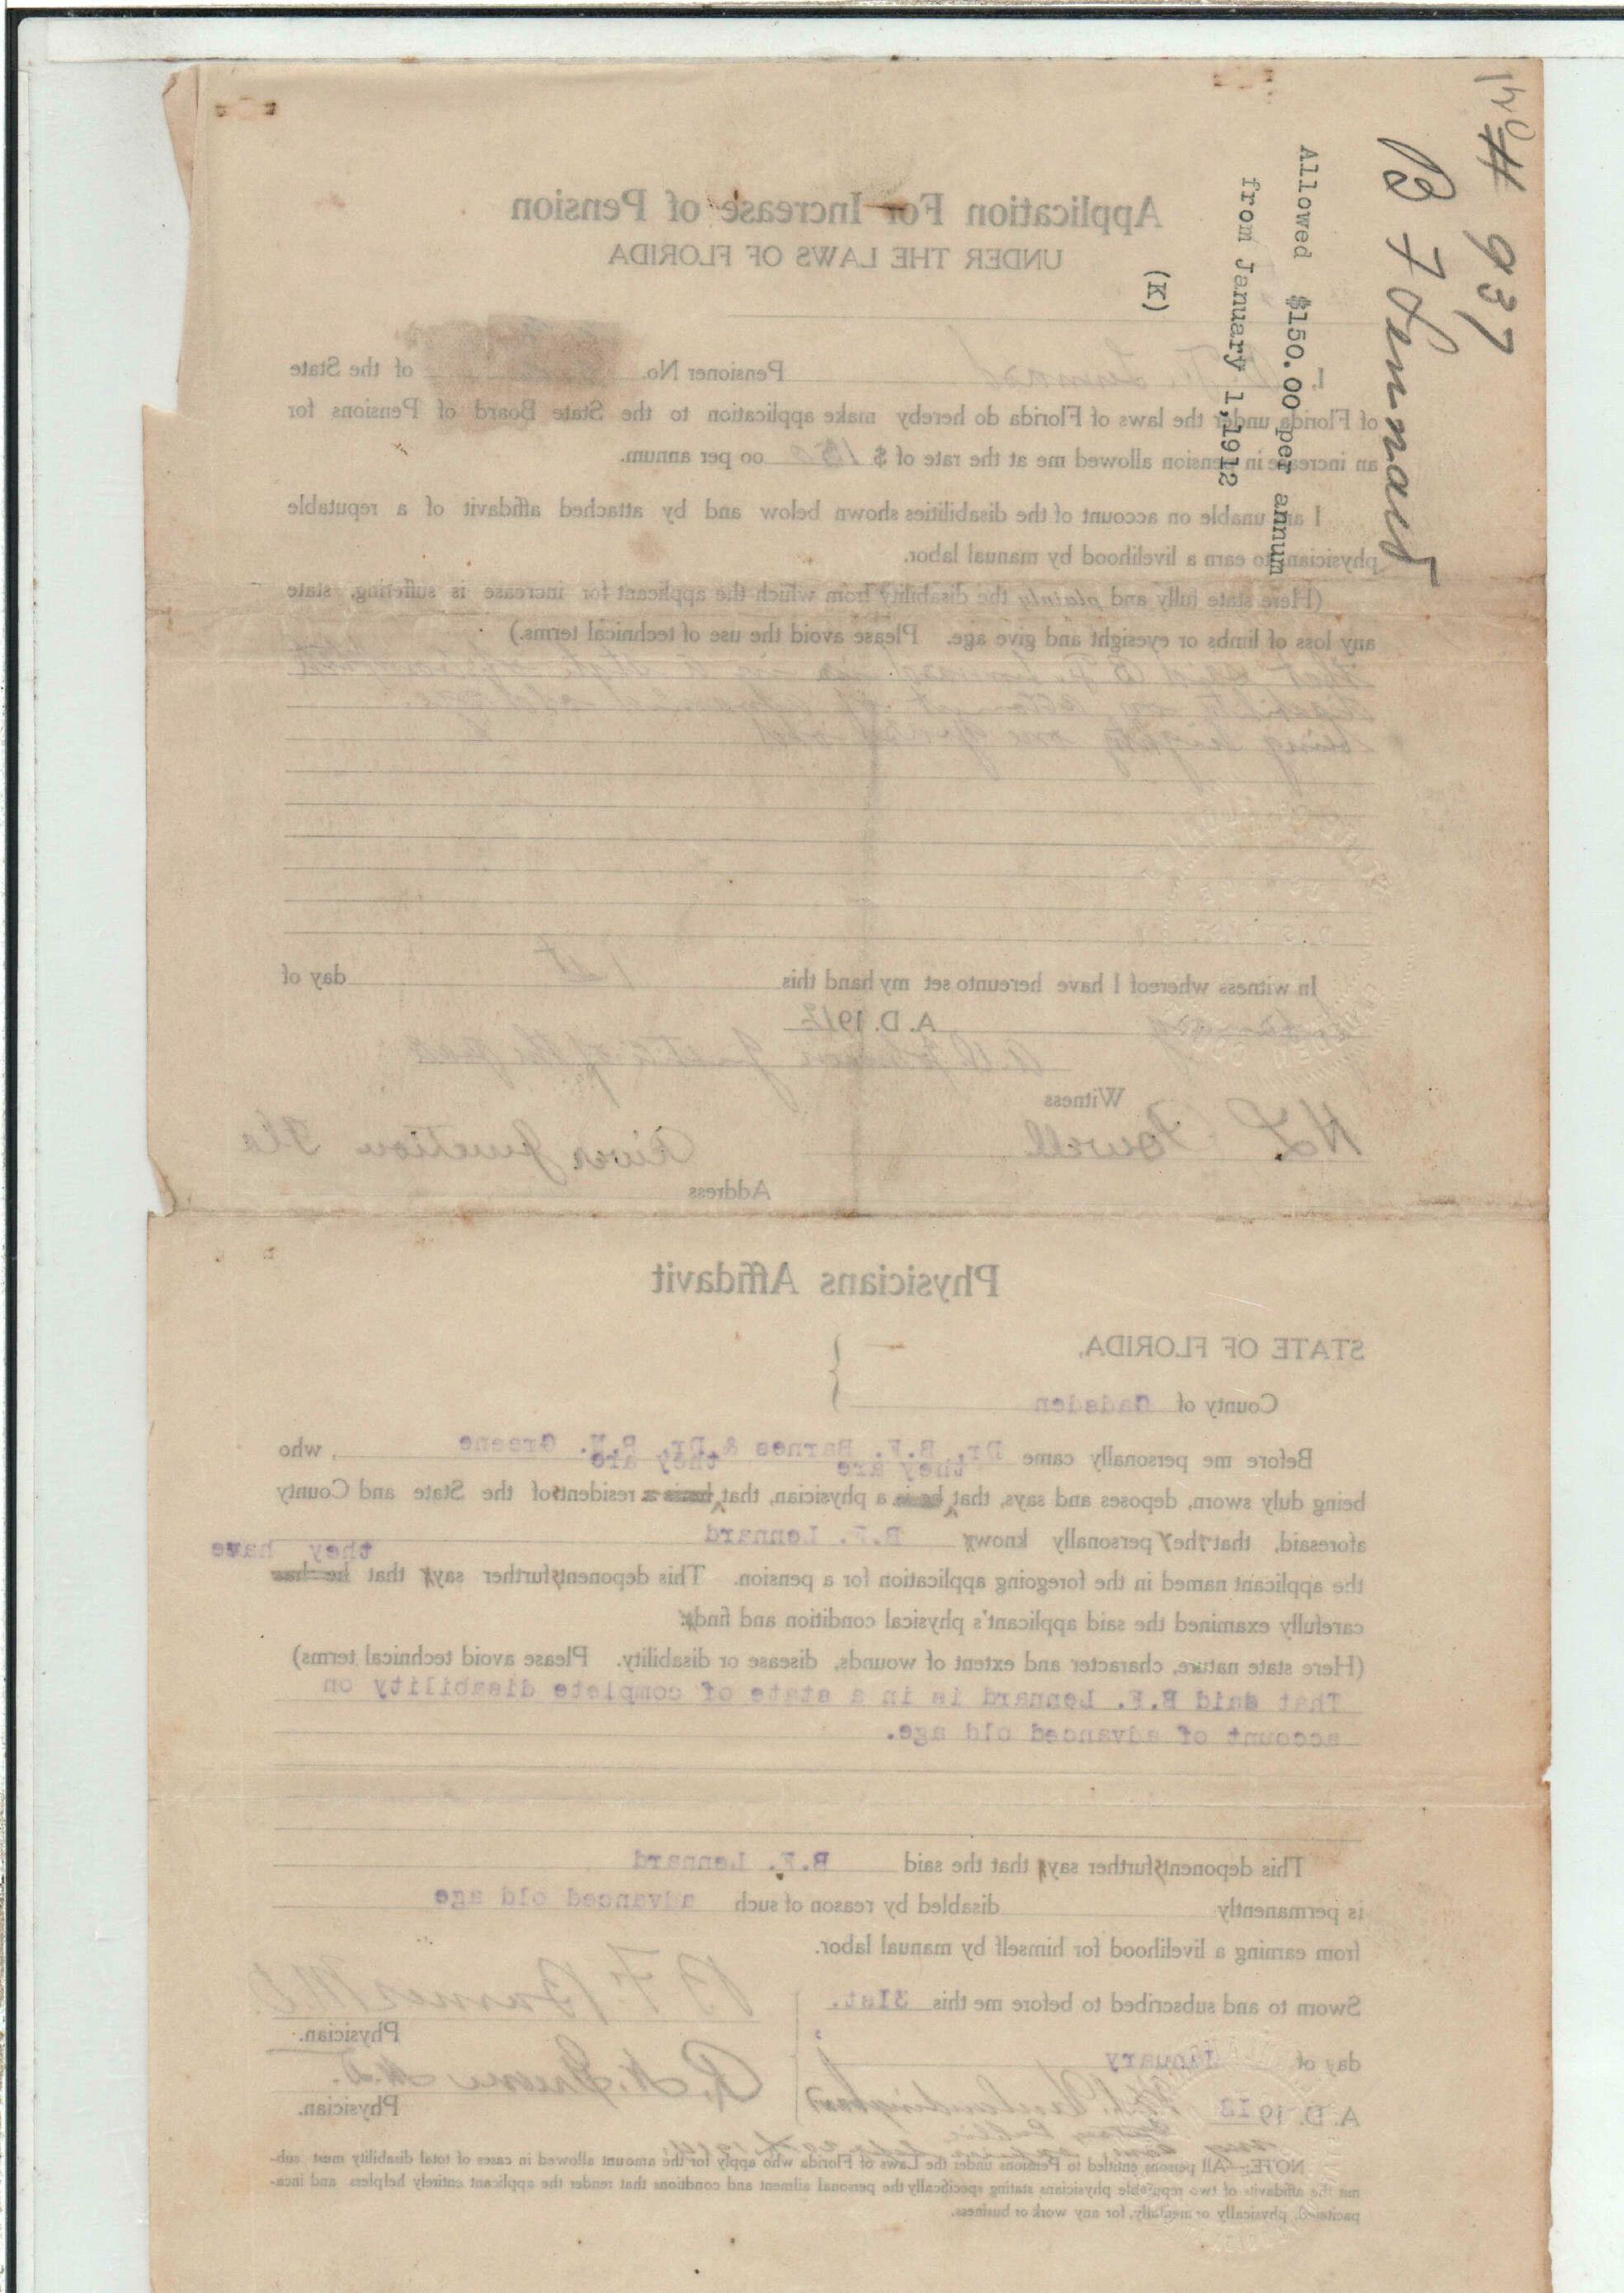 # 937
B F Lennard
Allowed $150.00 per annum
from January 1, 1912
(K)
Application For Increase of Pension
UNDER THE LAWS OF FLORIDA
I, B. F. Lennard Pensioner No. of the State
of Florida under the laws of Florida do hereby make application to the State Board of Pensions for
an increase in pension allowed me at the rate of $ 150 00 per annum.
I am unable on account of the disabilities shown below and by attached affidavit of a reputable
physician to earn a livelihood by manual labor.
(Here state fully and plainly the disability from which the applicant for increase is suffering, state
any loss of limbs or eyesight and give age. Please avoid the use of technical terms.)
That said B. F. Lennard is in a state of complete
disability on account of advanced old age.
being eighty one years old
In witness whereof I have hereunto set my hand this 1st day of
A. D. 1912
Justice of the peace
Witness
H L Powell River Junction Fla
Address
Physicians Affidavit
STATE OF FLORIDA,
County of Gadsden
Before me personally came Dr. B.F. Barnes & Dr. R.N. Greene, who
they are they are
being duly sworn, deposes and says, that he is a physician, that he is a resident of the State and County
aforesaid, that they personally know B.F. Lennard
they have
the applicant named in the foregoing application for a pension. This deponents further say that he has
carefully examined the said applicant's physical condition and find:
(Here state nature, character and extent of wounds, disease or disability. Please avoid technical terms)
That said B.F. Lennard is in a state of complete disability on
account of advanced old age.
This deponents further say that the said B.F. Lennard
is permanently disabled by reason of such advanced old age
from earning a livelihood for himself by manual labor.
Sworn to and subscribed to before me this 31st. B F Barnes M D
Physician.
day of January R. N. Greene M.D.
A. D. 1912 Physician.
Notary Public
NOTE:—All persons entitled to Pensions under the Laws of Florida who apply for the amount allowed in cases of total disability must sub-
mit the affidavits of two reputable physicians stating specifically the personal ailment and conditions that render the applicant entirely helpless and inca-
pacitated, physically or mentally, for any work or business.